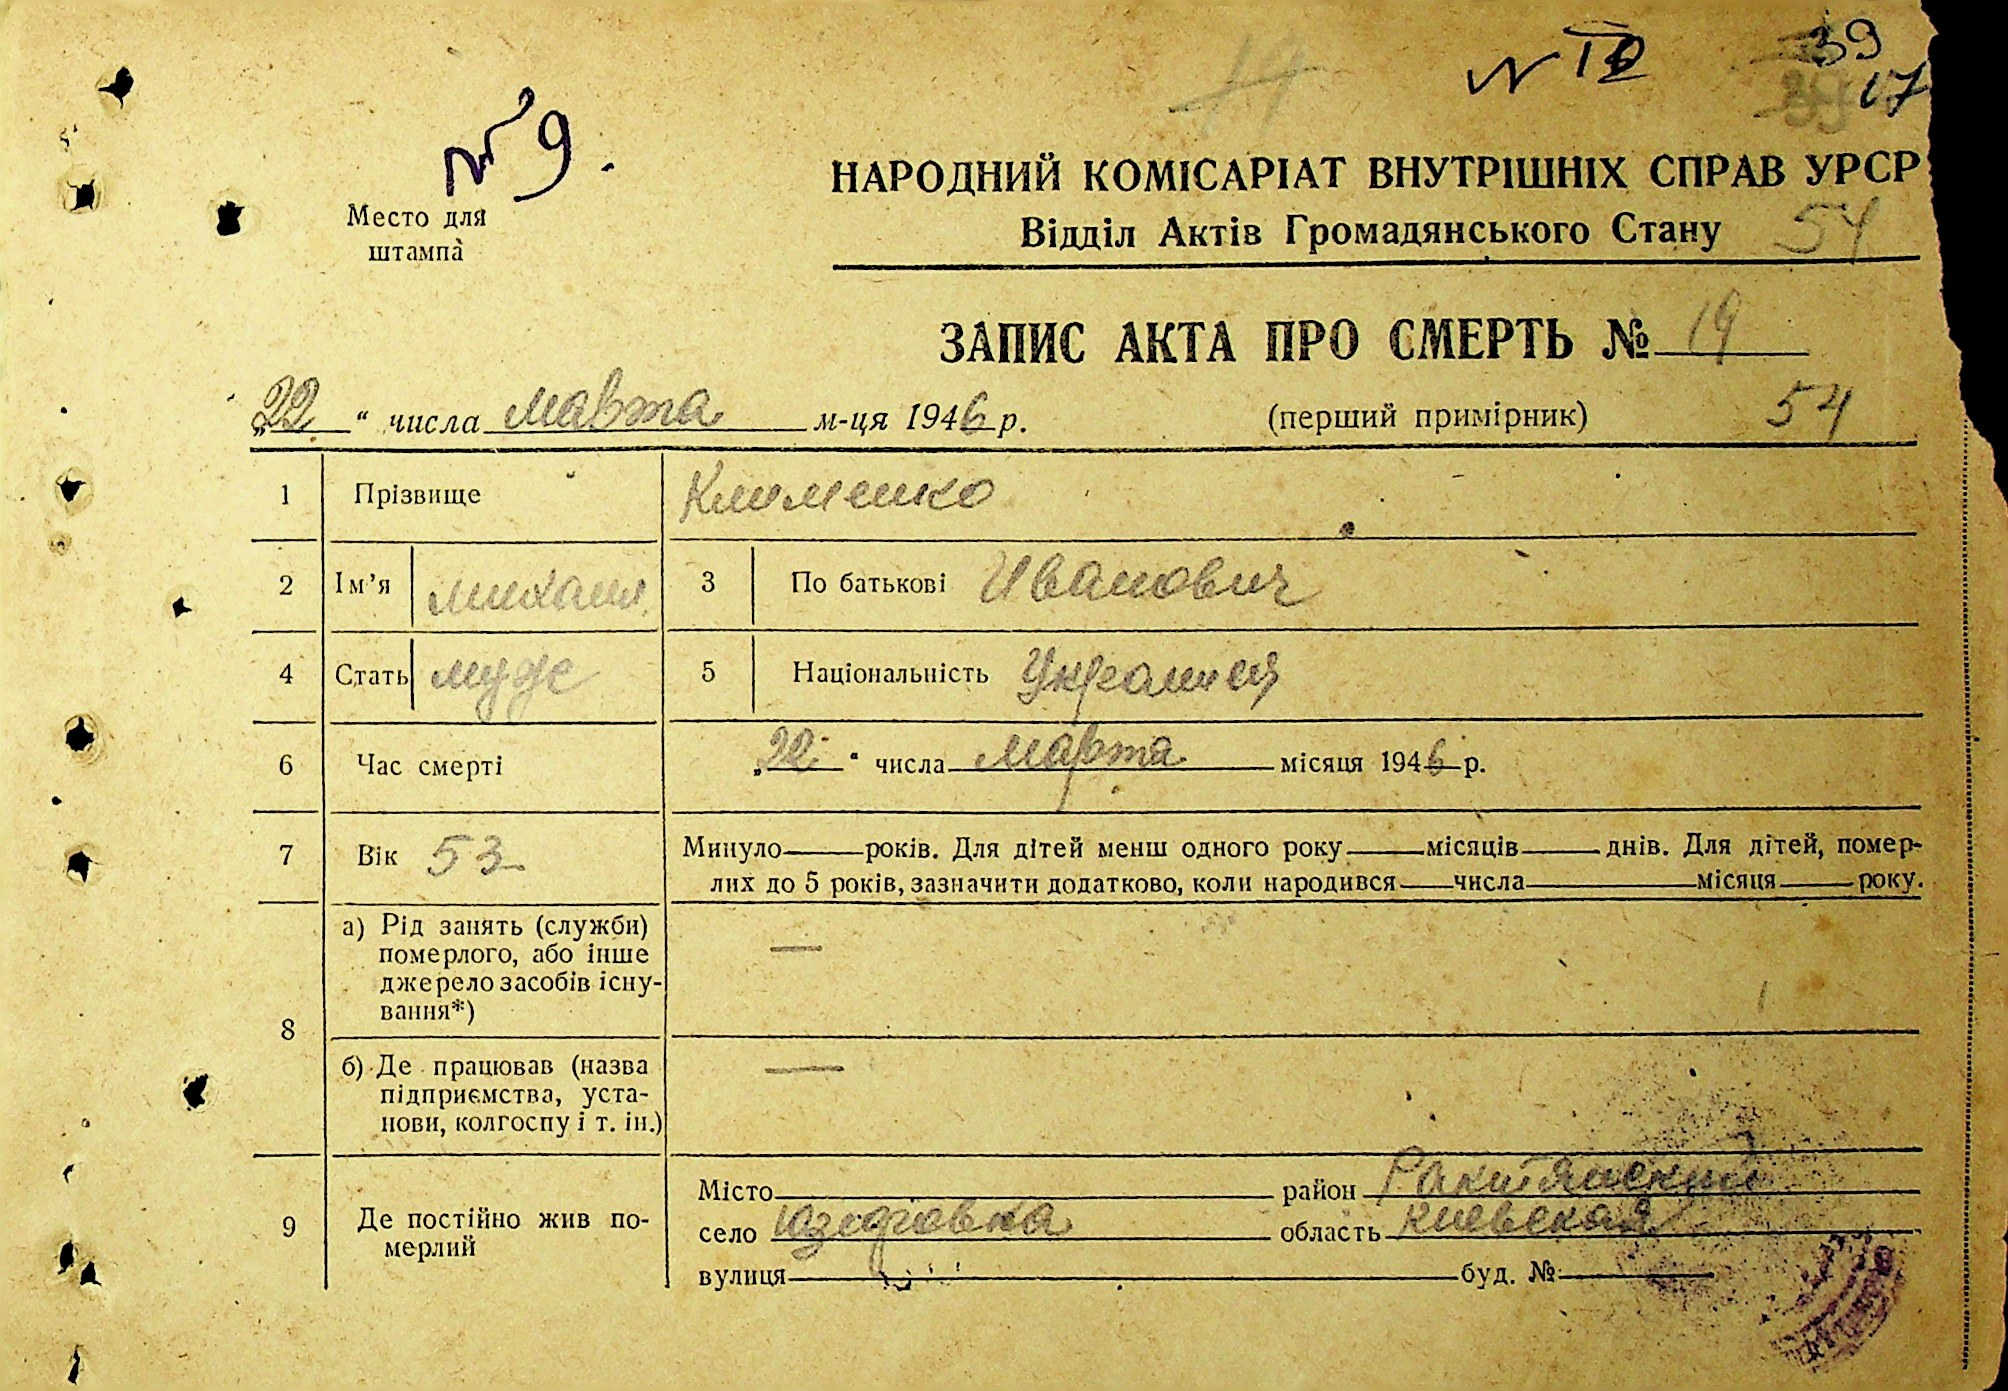 № 9.
№ 10
39
17
Место для
штампа
НАРОДНИЙ КОМІСАРІАТ ВНУТРІШНІХ СПРАВ УРСР
Відділ Актів Громадянського Стану
54
ЗАПИС АКТА ПРО СМЕРТЬ № 19
„22“ числа марта м-ця 1946 р. (перший примірник) 54
1 Прізвище Клименко
2 Ім’я михаил 3 По батькові Иванович
4 Стать муж 5 Національність Украинец
6 Час смерті „22“ числа марта місяця 1946 р.
7 Вік 53 Минуло років. Для дітей менш одного року місяців днів. Для дітей, помер-
лих до 5 років, зазначити додатково, коли народився числа місяця року.
8 а) Рід занять (служби)
померлого, або інше
джерело засобів існу-
вання*)
—
б) Де працював (назва
підприємства, уста-
нови, колгоспу і т. ін.)
—
9 Де постійно жив по-
мерлий
Місто район Ракитянский
село Юзефовка область киевская
вулиця буд. №